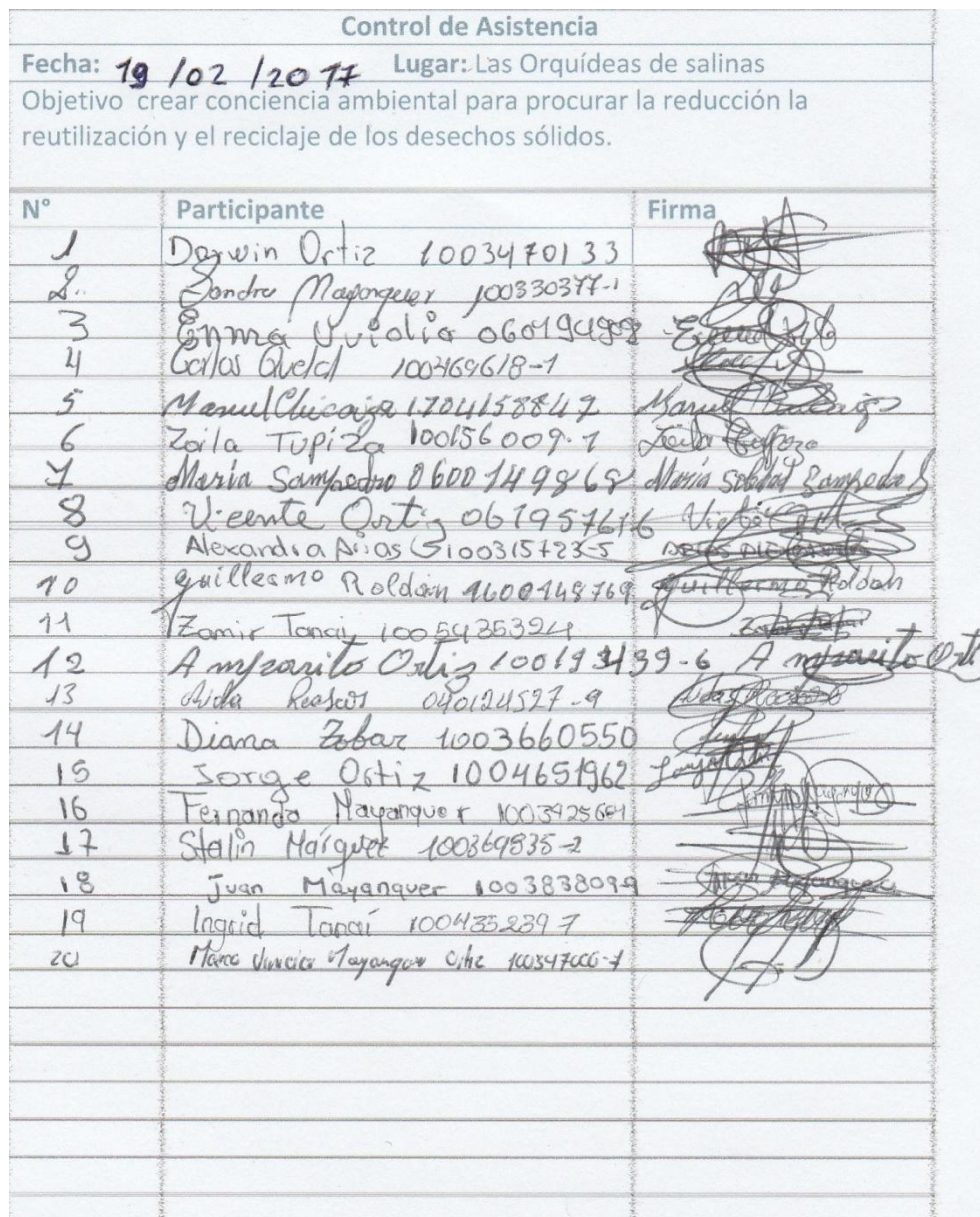 Control de Asistencia
Fecha: 19 /02 /2017 Lugar: Las Orquídeas de salinas
Objetivo crear conciencia ambiental para procurar la reducción la
reutilización y el reciclaje de los desechos sólidos.
N° Participante Firma
1 Darwin Ortiz 1003470133
2.. Sandra Mayanquer 100330377-1
3 Enma
4 Carlos 100469618-1
5 Manuel Chicaiza 1704158847 Manuel Chicaiza
6 Zoila TUPIZA 100156009-1 Zoila
7 María Sampedro 0600149868 María Soledad Sampedro
8 Vicente Ortiz
9 Alexandra Arias 100315723-5
10 guillermo Roldán 1600148769 guillermo Roldán
11 Zamir Tanai 1005435394
12 Amparito Ortiz Amparito
13 Aida 040124527-9
14 Diana Zobar 1003660550
15 Jorge Ortiz 1004651962
16 Fernando Mayanquer
17 Stalin 100369835-2
18 Juan Mayanquer 1003838099 Juan Mayanquer
19 Ingrid Tanaí 1004352397
20 Marco Vinicio Mayanquer Ortiz